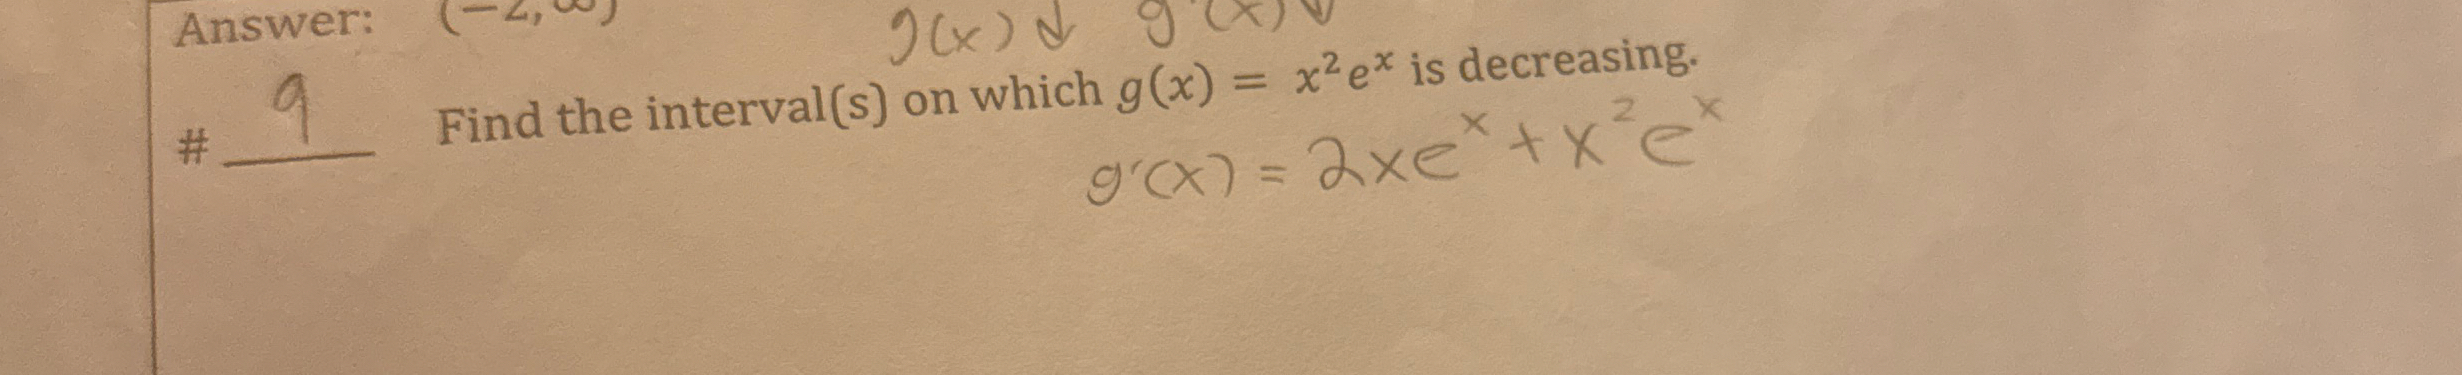 Answer: (-2, ∞)
g(x) ↓ g'(x) ↓
# 9 Find the interval(s) on which g(x) = x²eˣ is decreasing.
g'(x) = 2xeˣ + x²eˣ